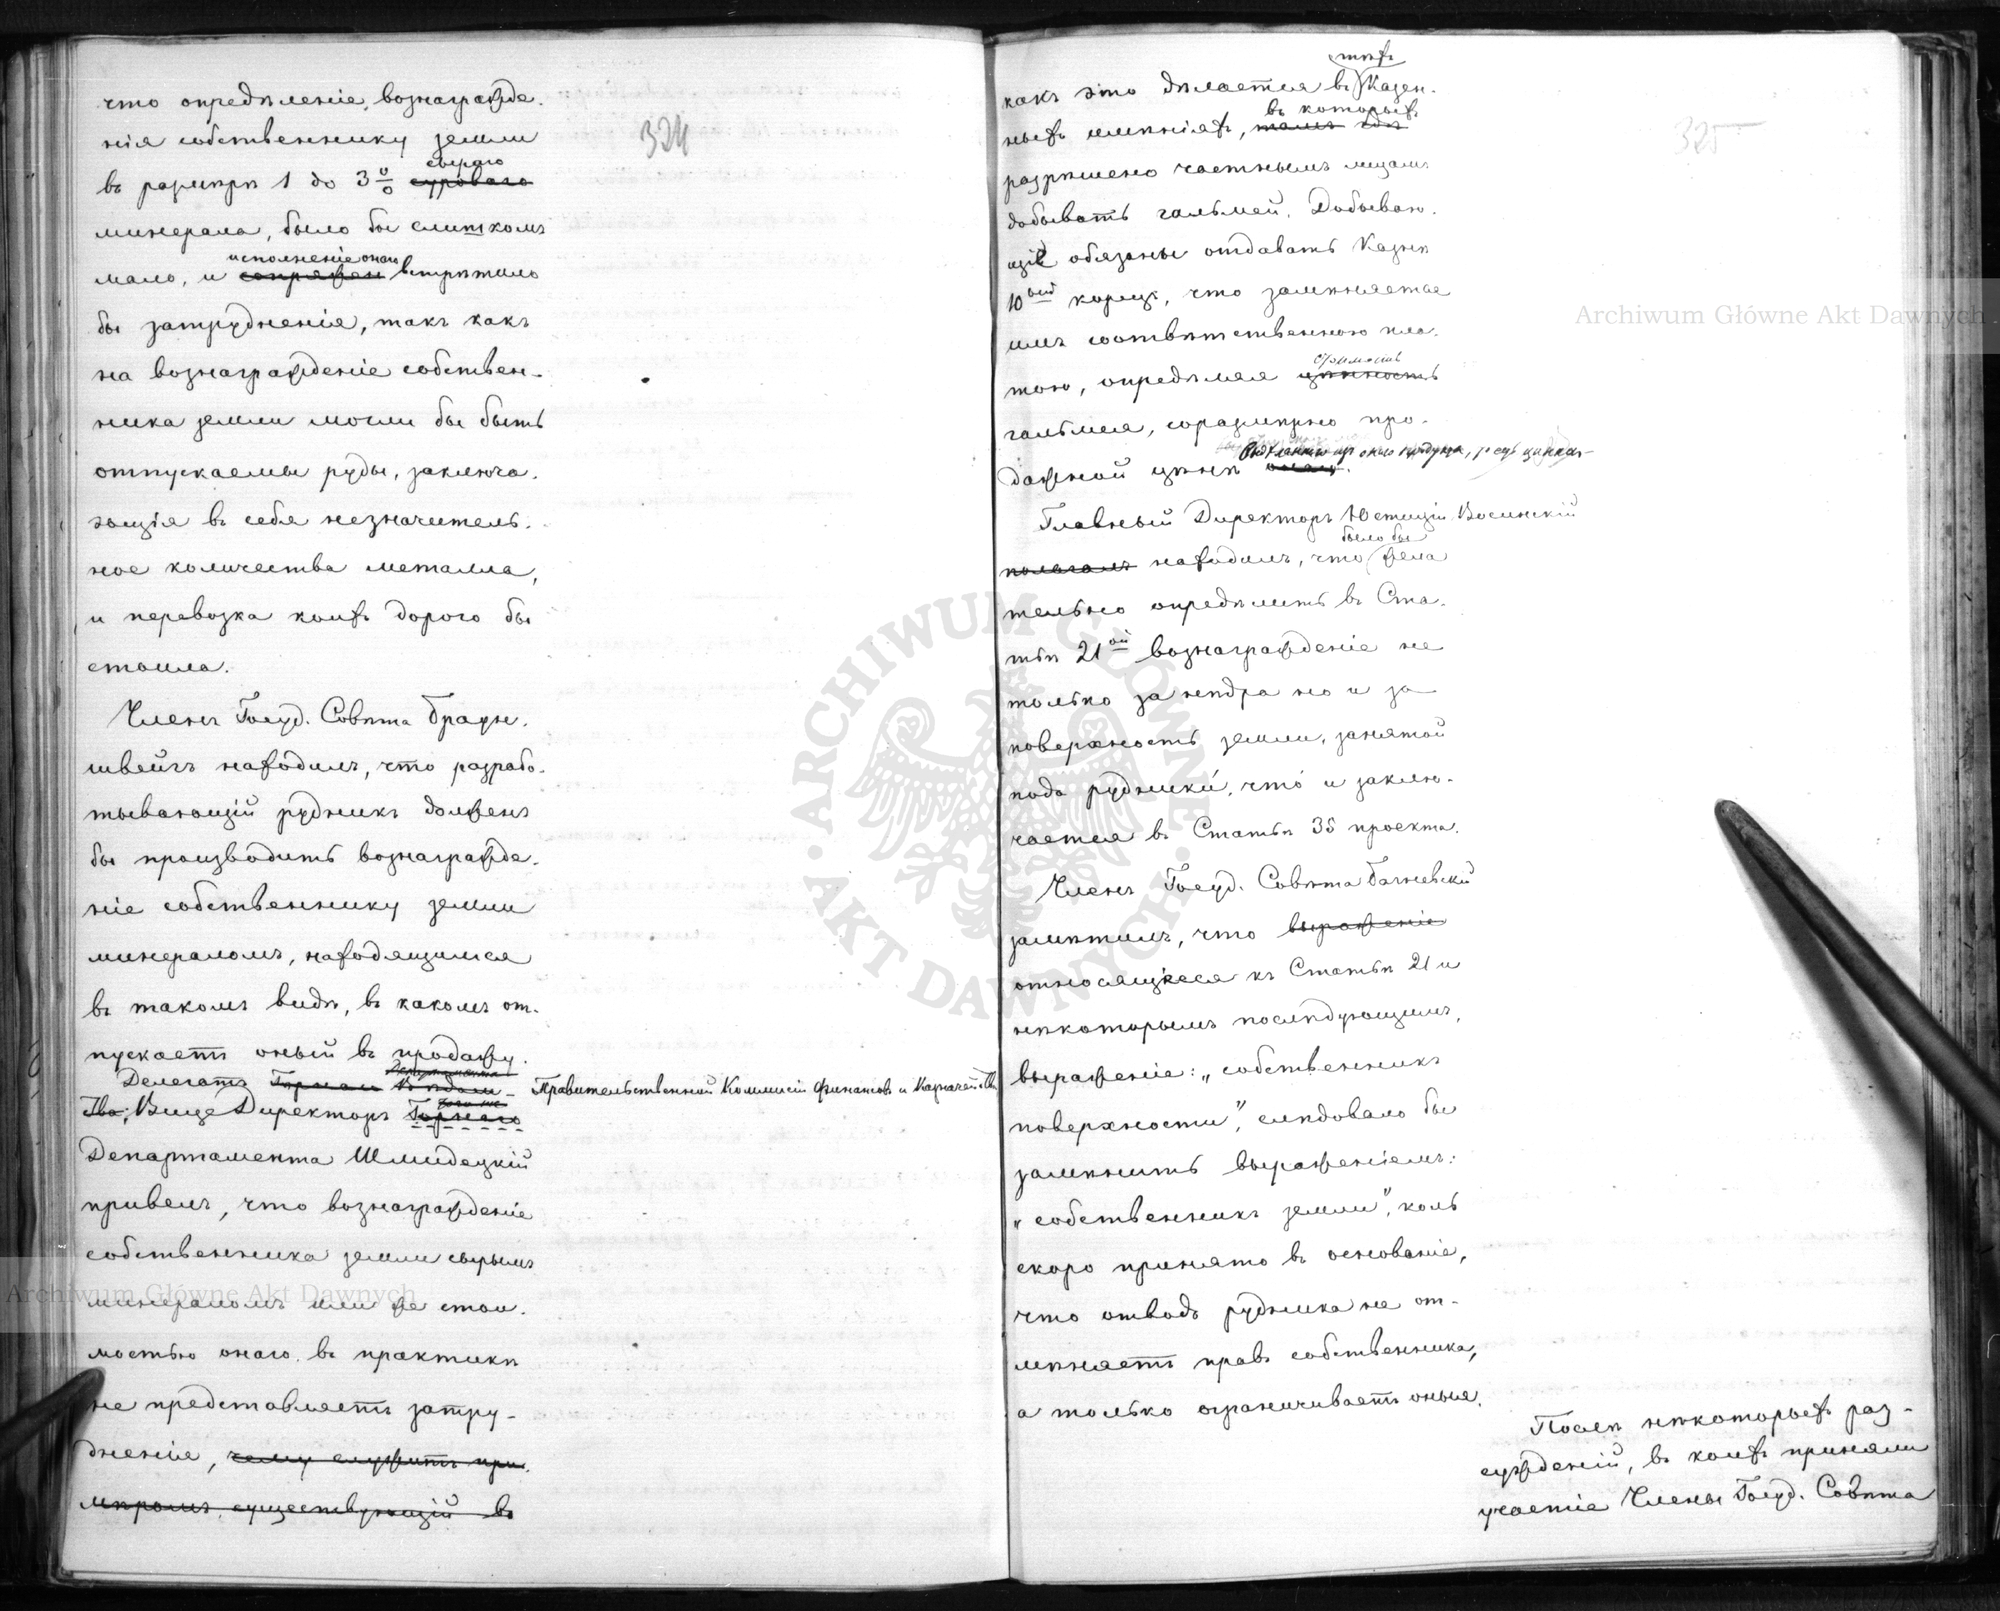 324
что опредѣленіе вознагражде-
нія собственнику земли
сыраго
въ размѣрѣ 1 до 3% суроваго
минерала, было бы слишкомъ
исполненіе онаго
мало, и сопряжен встрѣтило
бы затрудненія, такъ какъ
на вознагражденіе собствен-
ника земли могли бы быть
отпускаемы руды, заключа-
ющія въ себя незначитель-
ное количества металла,
и перевозка коихъ дорого бы
стоила.
Членъ Госуд. Совѣта Браун-
швейгъ находилъ, что разрабо-
тывающій рудникъ долженъ
бы производить вознагражде-
ніе собственнику земли
минераломъ, находящимся
въ такомъ видѣ, въ какомъ от-
пускаетъ оный въ продажу.
Департамента
Делегатъ Правительственной Коммисіи Финансовъ и Казначейства,
тогоже
Вице Директоръ Горнаго
Департамента Шмидецкій
привелъ, что вознагражденіе
собственника земли сырымъ
минераломъ или же стои-
мостью онаго въ практикѣ
не представляетъ затру-
дненія, чему служитъ при-
мѣромъ существующій въ
325
тѣхъ
какъ это дѣлается въ Казен-
въ которыхъ
ныхъ имѣніяхъ, тамъ гдѣ
разрѣшено частнымъ лицамъ
добывать гальмей. Добываю-
щіе обязаны отдавать Казнѣ
10ый корецъ, что замѣняется
имъ соотвѣтственною пла-
стоимость
тою, опредѣляя цѣнность
гальмея, соразмѣрно про-
дажной цѣнѣ
Главный Директоръ Юстиціи Восинскій
было бы
полагалъ находилъ, что жела
тельно опредѣлить въ Ста-
тьѣ 21ой вознагражденіе не
только за нѣдра но и за
поверхность земли, занятой
подъ рудники, что и заклю-
чается въ Статьѣ 35 проекта.
Членъ Госуд. Совѣта Багневскій
замѣтилъ, что выраженіе
относящееся къ Статьѣ 21 и
нѣкоторымъ послѣдующимъ,
выраженіе: „собственникъ
поверхности", слѣдовало бы
замѣнить выраженіемъ:
„собственникъ земли", коль
скоро принято въ основаніе,
что отводъ рудника не от-
мѣняетъ правъ собственника,
а только ограничиваетъ оныя.
Послѣ нѣкоторыхъ раз-
сужденій, въ коихъ приняли
участіе Члены Госуд. Совѣта
Archiwum Główne Akt Dawnych
Archiwum Główne Akt Dawnych
ARCHIWUM GŁÓWNE · AKT DAWNYCH ·